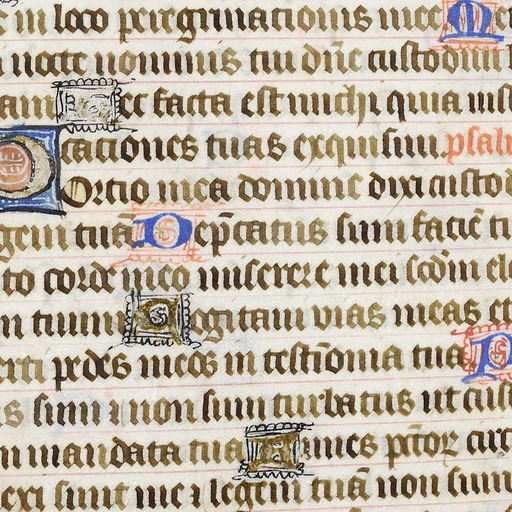 s in loco peregrinacionis mee M
nocte nominis tui dn̄e custodiui l
am H ec facta est michi quia iust
cationes tuas exquisiui. psalm
Portio mea domine dixi custod
gem tuā D ep̄catus sum faciē tu
to corde meo miserere mei scd̄m elo
n tuum C ogitaui vias meas et
erti pedes meos in testīonia tua P
s sum ⁊ non sum turbatus ut cust
mandata tua F unes pc̄toꝝ circ
lexi sunt me ⁊ legem tuā non sum